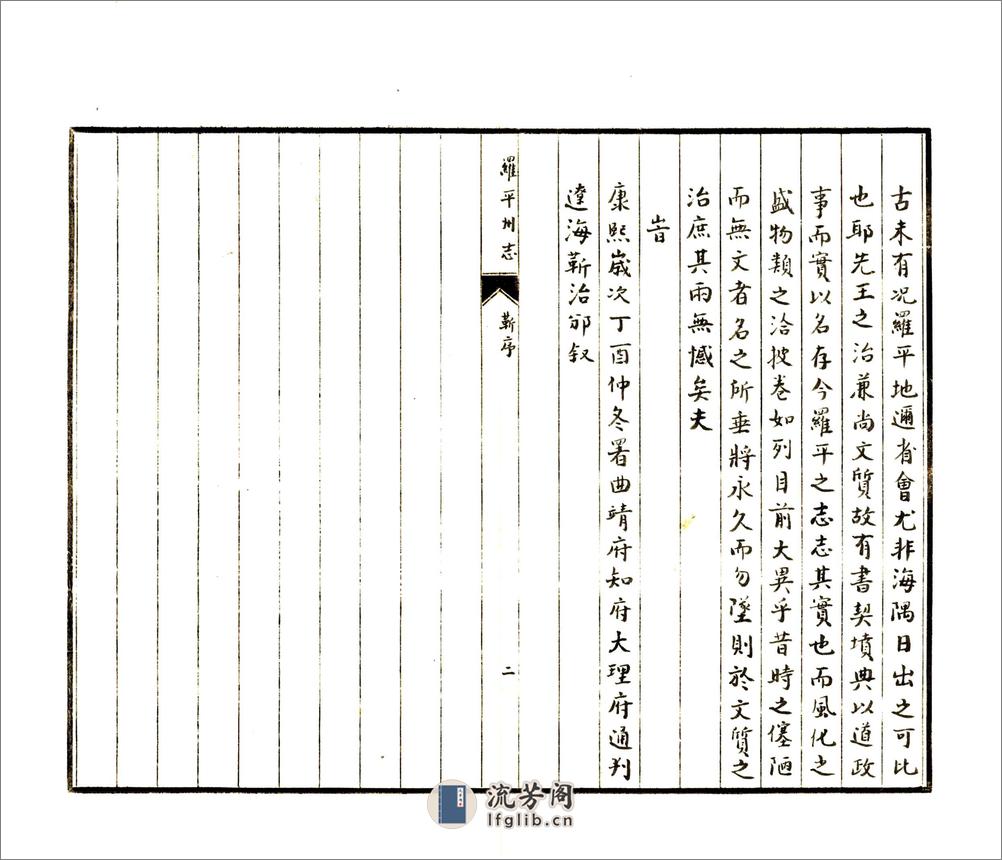 古未有况羅平地邇省會尤非海隅日出之可比
也耶先王之治兼尚文質故有書契墳典以道政
事而實以名存今羅平之志志其實也而風化之
盛物類之洽披卷如列目前大異乎昔時之僿陋
而無文者名之所垂將永久而勿墜則於文質之
治庶其兩無憾矣夫
旹
康熙歲次丁酉仲冬署曲靖府知府大理府通判
遼海靳治邠叙
羅平州志
靳序
二
流芳阁
lfglib.cn